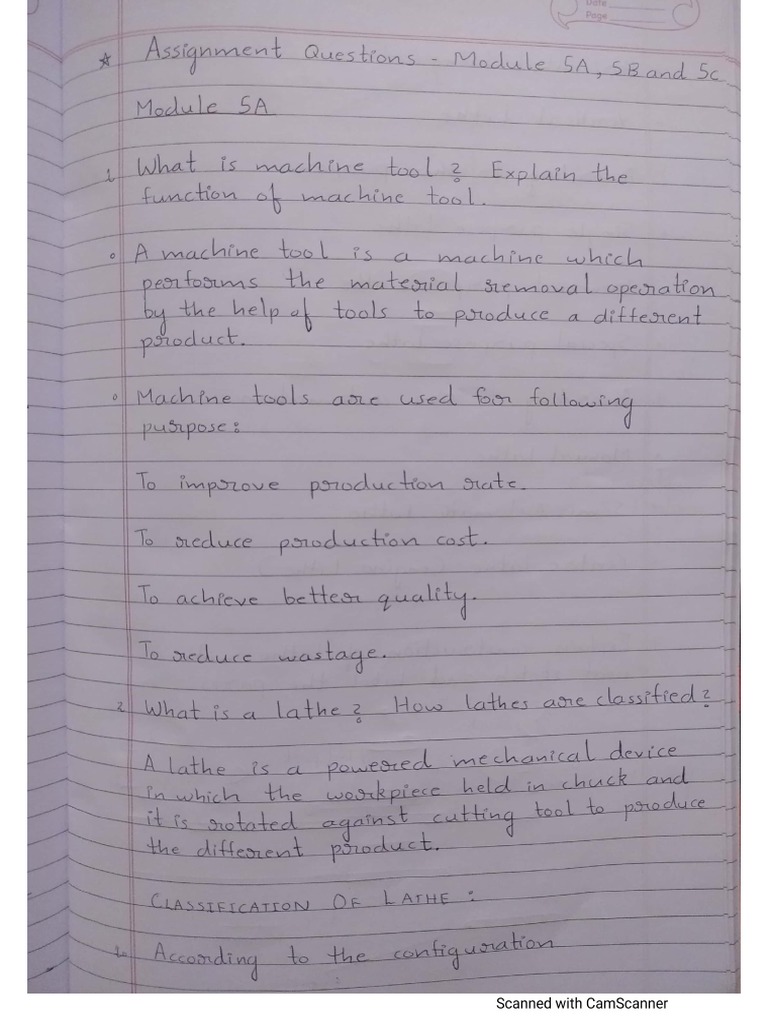 Date
Page
* Assignment Questions - Module 5A, 5B and 5c
Module 5A
1. What is machine tool? Explain the
function of machine tool.
o A machine tool is a machine which
performs the material removal operation
by the help of tools to produce a different
product.
o Machine tools are used for following
purpose:
To improve production rate.
To reduce production cost.
To achieve better quality.
To reduce wastage.
2. What is a lathe? How lathes are classified?
A lathe is a powered mechanical device
in which the workpiece held in chuck and
it is rotated against cutting tool to produce
the different product.
CLASSIFICATION OF LATHE:
1. According to the configuration
Scanned with CamScanner